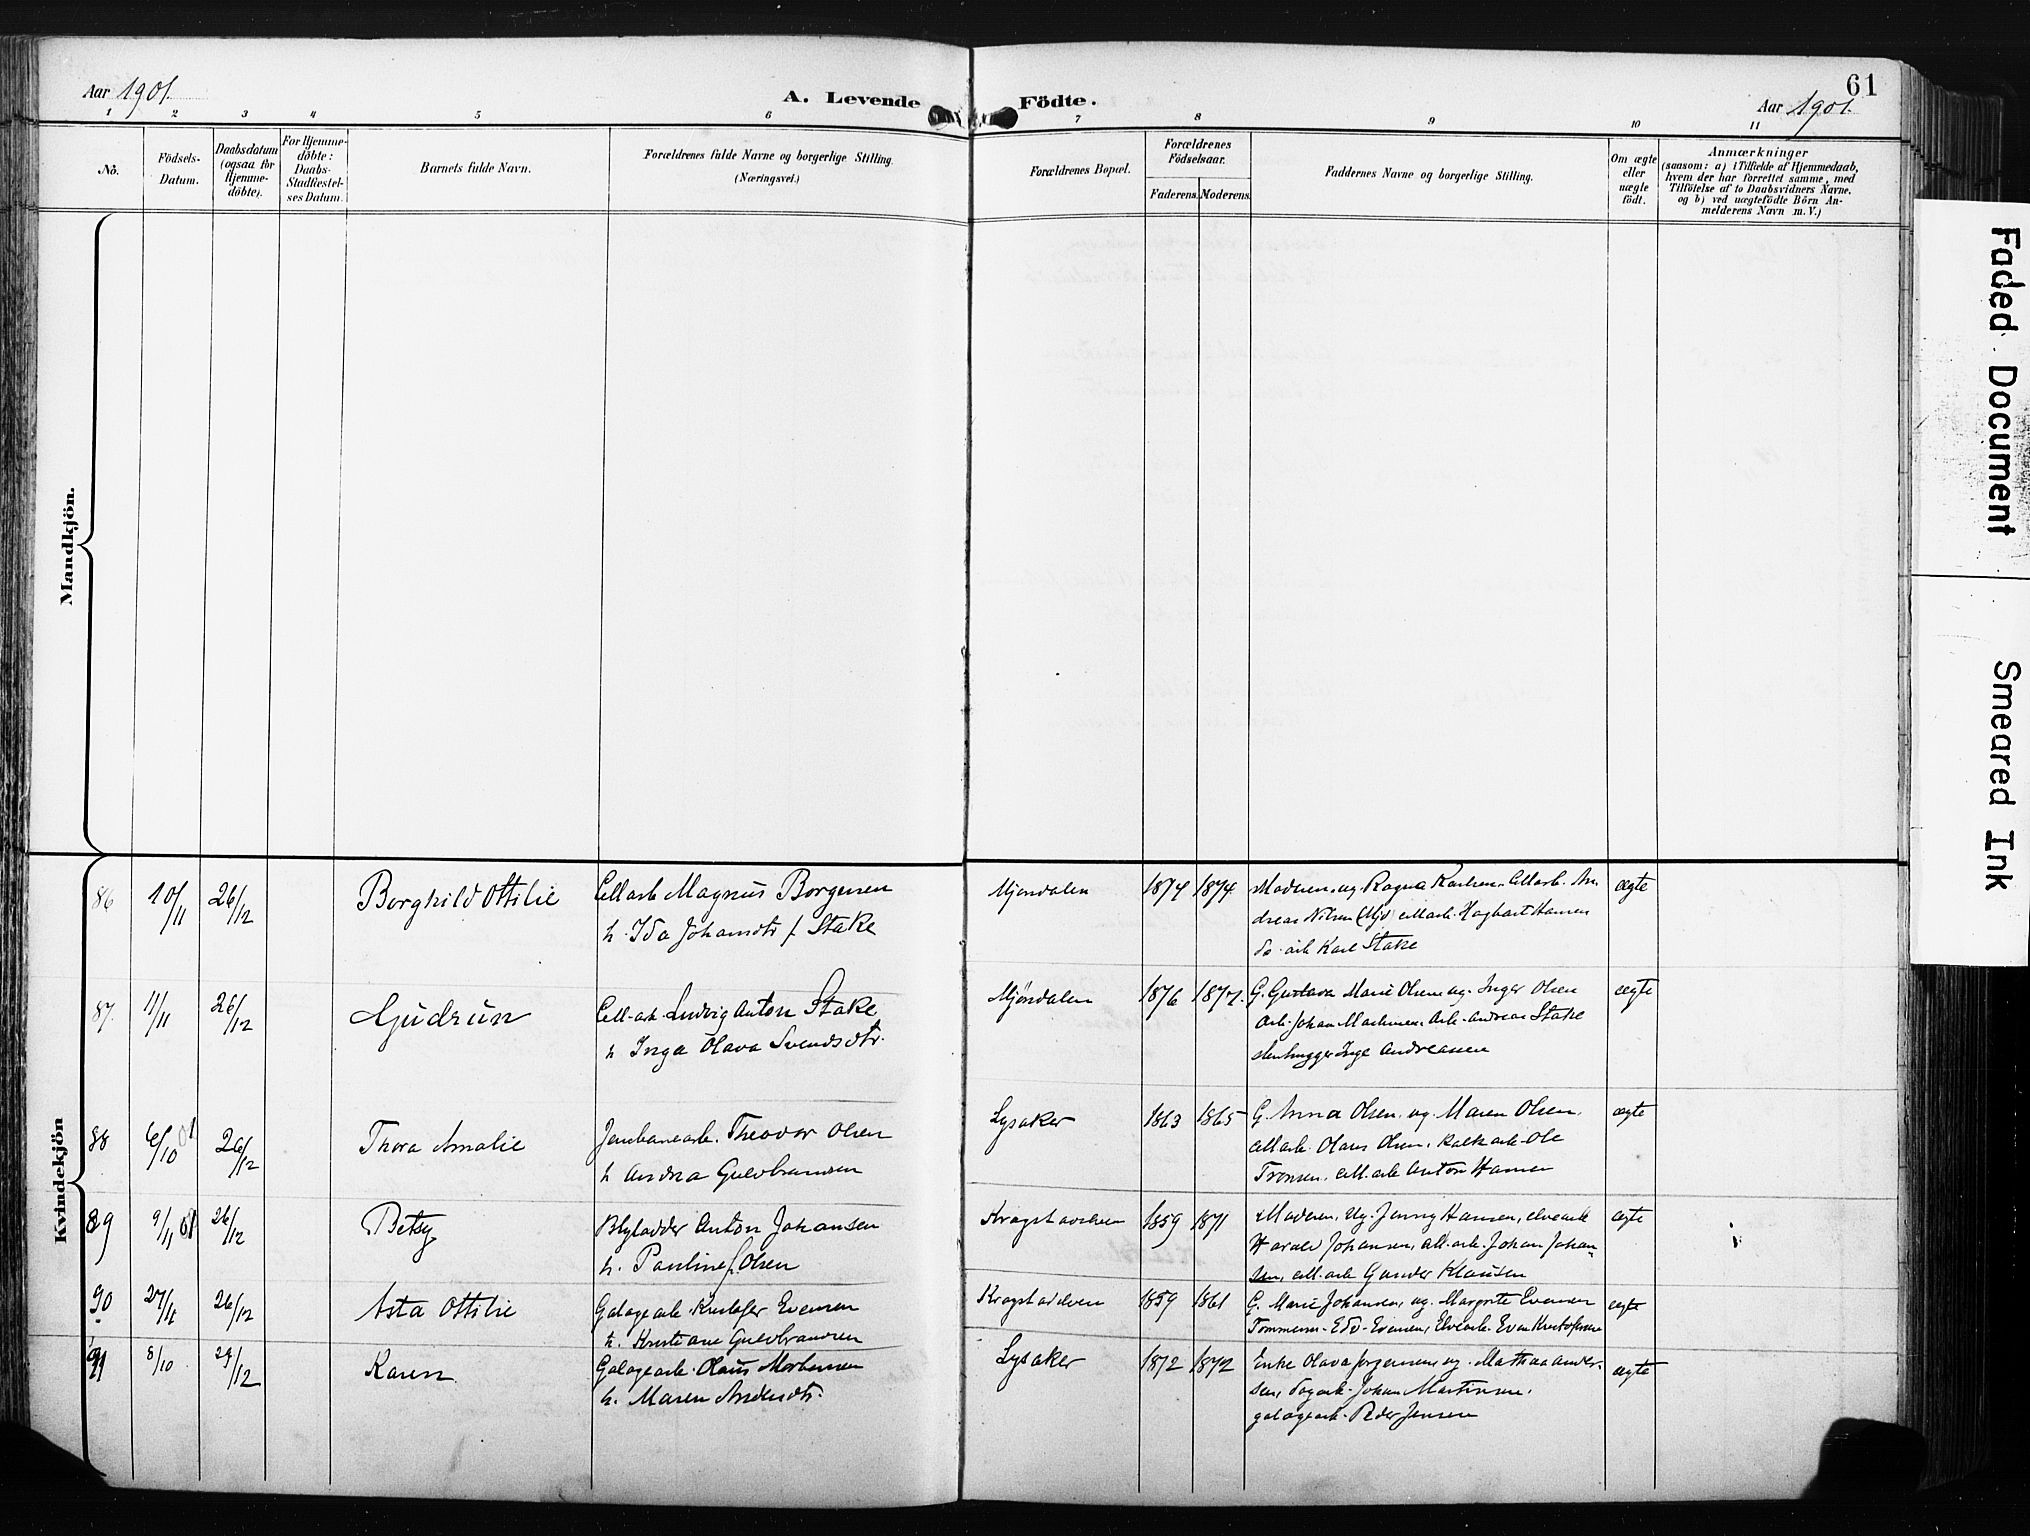 Aar 1901.
A. Levende Födte.
61
Aar 1901.
1 2 3 4 5 6 7 8 9 10 11
No.
Födsels-Datum.
Daabsdatum (ogsaa for Hjemme-döbte).
For Hjemme-döbte: Daabs-Stadfæstel-ses Datum.
Barnets fulde Navn.
Forældrenes fulde Navne og borgerlige Stilling.
(Næringsvei.)
Forældrenes Bopæl.
Forældrenes Födselsaar.
Faderens. Moderens.
Faddernes Navne og borgerlige Stilling.
Om ægte eller uægte födt.
Anmærkninger
(saasom: a) i Tilfælde af Hjemmedaab,
hvem der har forrettet samme, med
Tilföielse af to Daabsvidners Navne.
og b) ved uægtefödte Börn An-
melderens Navn m. V.)
Mandkjön.
Kvindekjön
86 10/11 26/12 Borghild Ottilie Cellarb Magnus Borgersen Mjøndalen 1874 1874 Moderen, ug. Ragna Karlsen. Cellarb. An-
h. Ida Johansdtr f. Stake dreas Nilsen (Mjd) cellarb. Hagbart Hansen ægte
do. arb Karl Stake
87. 11/11 26/12 Gudrun Cell-arb. Ludvig Anton Stake Mjöndalen 1876 1877. G. Gustava Marie Olsen ug. Inger Olsen ægte
h Inga Olava Svendsdtr. Arb. Johan Arb. Andreas Stake
stenhugger Inge Andreassen
88 6/10 01 26/12 Thora Amalie Jernbanearb. Theodor Olsen Lysaker 1863 1865 G. Anna Olsen, ug. Maren Olsen, ægte
h Andrea Gulbransen cellarb. Olaus Olsen, kalkarb. Ole
Tronsen, cell. arb Anton Hansen
89 9/11 01 26/12 Betsy Anton Johansen Krogstadelven 1859 1871 Moderen, Ug. Jenny Hansen, elvearb ægte
h. Pauline f. Olsen Harald Johansen, cell. arb. Johan Johan-
sen, cell. arb Gunder Klausen
90 27/11 26/12 Asta Ottilie Galogearb. Kristofer Evensen Krogstadelven 1859 1861 G. Marie Johansen, ug. Margrete Evensen ægte
h. Kristiane Gulbrandsen Tømmerm. Edv. Evensen, Elvearb. Even Kristofersen
91 8/10 29/12 Karen Galogearb. Olaus Mortensen Lysaker 1872 1872 Enke Olava Jørgensen ug. Mathea Ander- ægte
h. Maren Andersdtr. sen, dagarb. Johan Martinsen,
galogearb. Peder Jensen
Faded Document
Smeared Ink